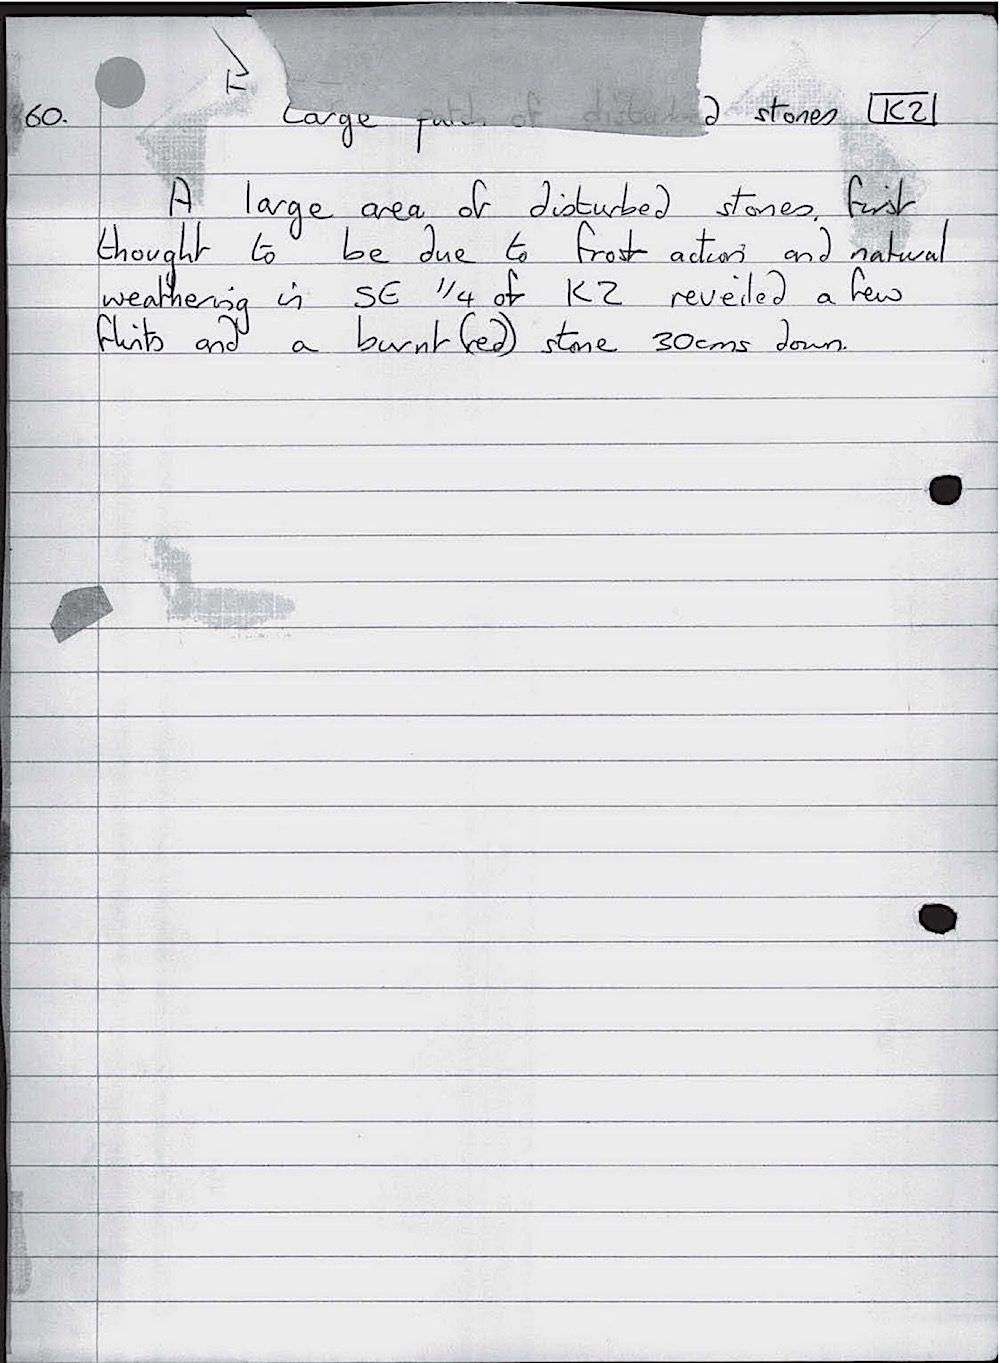 60. Large patch of disturbed stones K2
A large area of disturbed stones, first
thought to be due to frost action and natural
weathering in SE 1/4 of K2 reveiled a few
flints and a burnt (red) stone 30cms down.